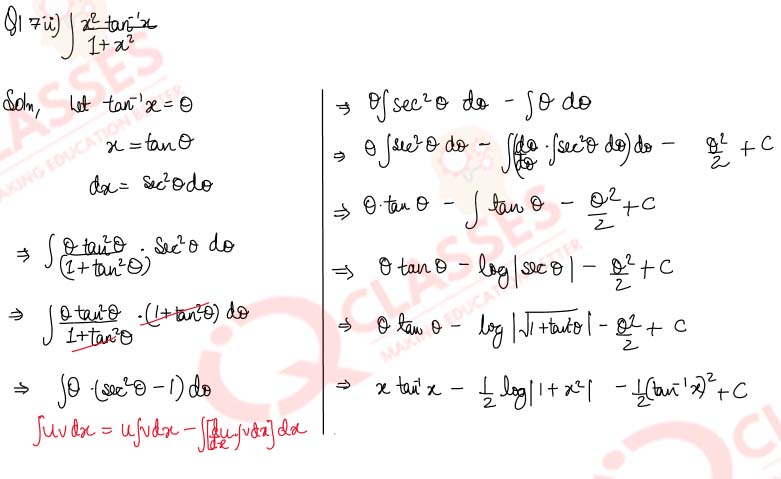 Q17 ii) ∫ x² tan⁻¹x / 1 + x²
Soln, Let tan⁻¹x = θ
x = tan θ
dx = sec²θ dθ
⇒ ∫ θ tan²θ / (1 + tan²θ) · sec²θ dθ
⇒ ∫ θ tan²θ / 1 + tan²θ · (1 + tan²θ) dθ
⇒ ∫ θ · (sec²θ − 1) dθ
∫uv dx = u∫v dx − ∫[du/dx · ∫v dx] dx
⇒ θ∫ sec²θ dθ − ∫ θ dθ
⇒ θ ∫ sec²θ dθ − ∫(dθ/dθ · ∫sec²θ dθ) dθ − θ²/2 + C
⇒ θ · tan θ − ∫ tan θ − θ²/2 + C
⇒ θ tan θ − log|sec θ| − θ²/2 + C
⇒ θ tan θ − log|√1 + tan²θ| − θ²/2 + C
⇒ x tan⁻¹x − 1/2 log|1 + x²| − 1/2 (tan⁻¹x)² + C
IQ CLASSES
MAKING EDUCATION BETTER